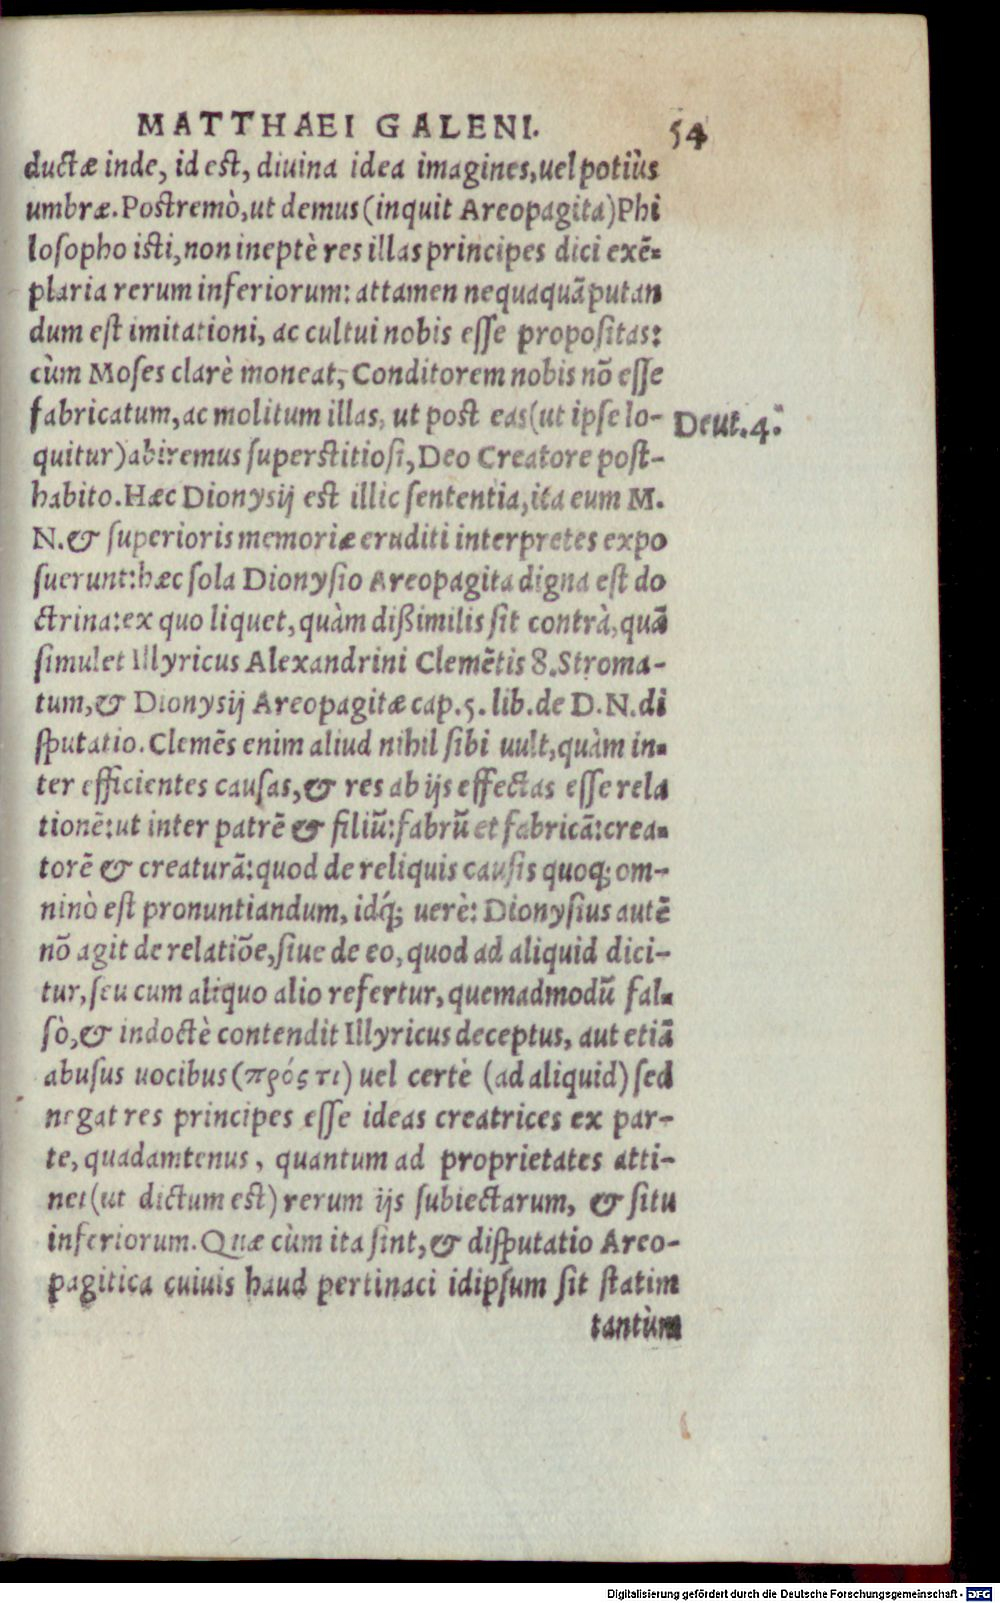 MATTHAEI GALENI.
54
ductæ inde, id est, diuina idea imagines, uel potiùs
umbræ. Postremò, ut demus (inquit Areopagita) Phi
losopho isti, non ineptè res illas principes dici exẽ-
plaria rerum inferiorum: attamen nequaquã putan
dum est imitationi, ac cultui nobis esse propositas:
cùm Moses clarè moneat, Conditorem nobis nõ esse
fabricatum, ac molitum illas, ut post eas (ut ipse lo-
Deut. 4.
quitur) abiremus superstitiosi, Deo Creatore post-
habito. Hæc Dionysij est illic sententia, ita eum M.
N. & superioris memoriæ eruditi interpretes expo
suerunt: hæc sola Dionysio Areopagita digna est do
ctrina: ex quo liquet, quàm dißimilis sit contrà, quã
simulet Illyricus Alexandrini Clemẽtis 8. Stroma-
tum, & Dionysij Areopagitæ cap. 5. lib. de D. N. di
sputatio. Clemẽs enim aliud nihil sibi uult, quàm in-
ter efficientes causas, & res ab ijs effectas esse rela
tionẽ: ut inter patrẽ & filiũ: fabrũ et fabricã: crea-
torẽ & creaturã: quod de reliquis causis quoq; om-
ninò est pronuntiandum, idq́; uerè: Dionysius autẽ
nõ agit de relatiõe, siue de eo, quod ad aliquid dici-
tur, seu cum aliquo alio refertur, quemadmodũ fal-
sò, & indoctè contendit Illyricus deceptus, aut etiã
abusus uocibus (πρός τι) uel certè (ad aliquid) sed
negat res principes esse ideas creatrices ex par-
te, quadamtenus, quantum ad proprietates atti-
net (ut dictum est) rerum ijs subiectarum, & situ
inferiorum. Quæ cùm ita sint, & disputatio Areo-
pagitica cuiuis haud pertinaci idipsum sit statim
tantùm
Digitalisierung gefördert durch die Deutsche Forschungsgemeinschaft - DFG